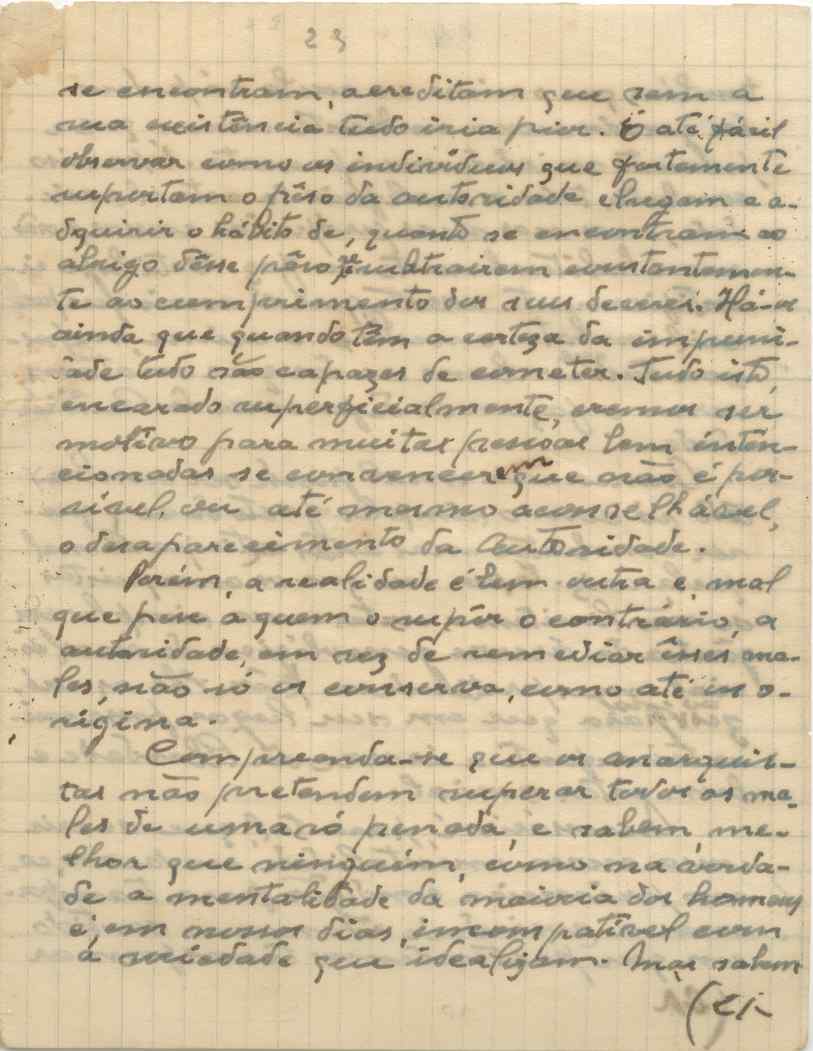 23
se encontram, acreditam que sem a
sua existência tudo iria pior. É até fácil
observar como os indivíduos que fortemente
suportam o pêso da autoridade chegam a a-
dquirir o hábito de, quanto se encontram ao
abrigo dêsse pêso se subtrairem constantemen-
te ao cumprimento dos seus deveres. Há-os
ainda que quando têm a certeza da impuni-
dade tudo são capazes de cometer. Tudo isto,
encarado superficialmente, cremos ser
motivo para muitas pessoas bem inten-
cionadas se convencerem que não é pos-
sível, ou até mesmo aconselhável,
o desaparecimento da Autoridade.
Porém, a realidade é bem outra e, mal
que pese a quem o supôr o contrário, a
autoridade, em vez de remediar êsses ma-
les, não só os conserva, como até os o-
rigina.
Compreenda-se que os anarquis-
tas não pretendem superar todos os ma-
les de uma só penada, e sabem, me-
lhor que ninguém, como na verda-
de a mentalidade da maioria dos homens
é, em nossos dias, incompatível com
a sociedade que idealizam. Mas sabem